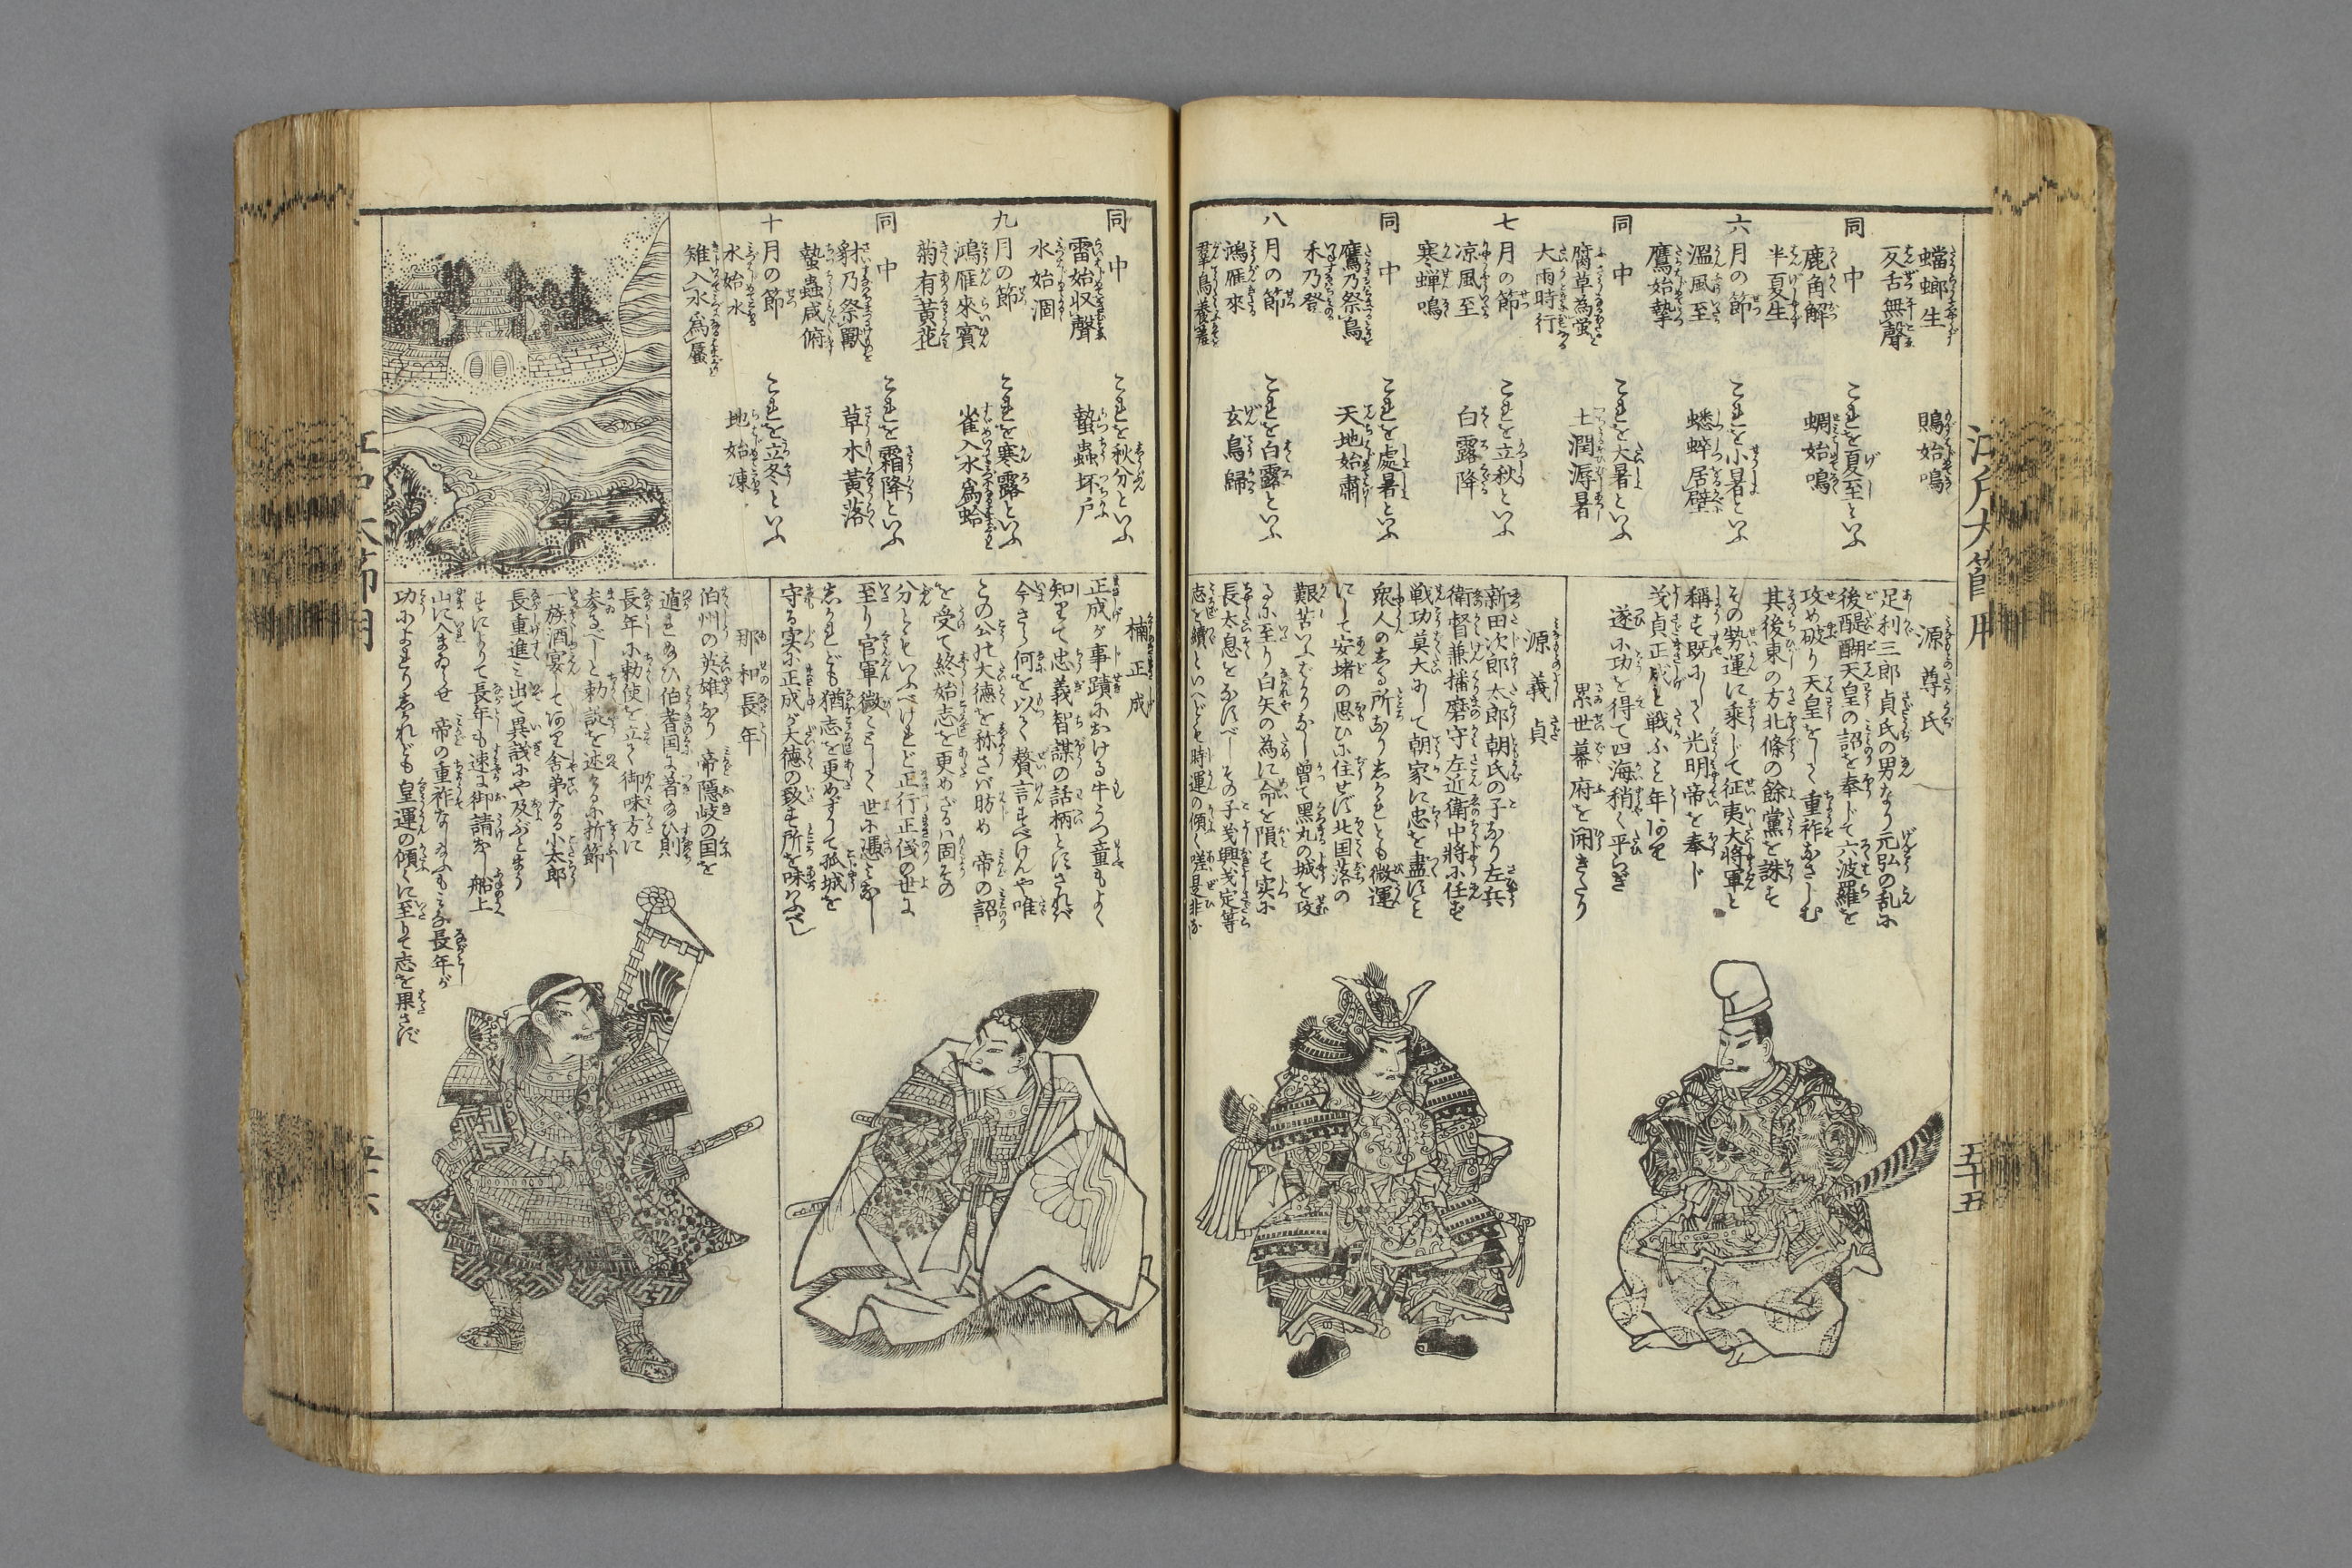 江戸大節用
五十五
蟷螂生
鵙始鳴
反舌無聲
同 中 これを夏至といふ
鹿角解
蜩始鳴
半夏生
六月の節 これを小暑といふ
温風至
蟋蟀居壁
鷹始摯
同 中 これを大暑といふ
腐草為蛍
土潤溽暑
大雨時行
七月の節 これを立秋といふ
凉風至
白露降
寒蝉鳴
同 中 これを處暑といふ
鷹乃祭鳥
天地始肅
禾乃登
八月の節 これを白露といふ
鴻雁來
玄鳥歸
羣鳥養羞
源尊氏
足利三郎貞氏の男なり元弘の乱に
後醍醐天皇の詔を奉じて六波羅を
攻め破り天皇をして重祚なさしむ
其後東の方北條の餘黨を誅す
その勢運に乗じて征夷大将軍と
稱す既にして光明帝を奉じ
義貞正成と戦ふこと年あり
遂に功を得て四海稍く平らぎ
累世幕府を開きたり
源義貞
新田次郎太郎朝氏の子なり左兵
衛督兼播磨守左近衛中將に任ず
戦功莫大にして朝家に忠を盡すこと
衆人のしる所なりしかれども微運
にして安堵の思ひに住せず北国落の
艱苦いふばかりなし曽て黒丸の城を攻
るに至り白矢の為に命を隕す実に
長大息をなすべしその子義興義定等
志を續といへども時運の傾く嗟是非な
同 中 これを秋分といふ
雷始収聲
蟄蟲坏戸
水始涸
九月の節 これを寒露といふ
鴻雁來賓
雀入水為蛤
菊有黄花
同 中 これを霜降といふ
豺乃祭獸
草木黄落
蟄蟲咸俯
十月の節 これを立冬といふ
水始氷
地始凍
雉入水為蜃
楠正成
正成が事蹟におけるうつ童もよく
知りて忠義智謀の話柄とすされば
今さら何を以て贅言すべけんや唯
この公の大徳を称さば昉め帝の詔
を受て終始志を更めざるハ固その
分ともいふべけれど正行正儀の世に
至り官軍微々として世に憑ミなし
しかれども猶志を更めずして孤城を
守る実に正成が大徳の致す所を味ふべし
那和長年
伯州の英雄なり帝隠岐の国を
遁れ給ひ伯耆国に着給ひ則
長年に勅使を立て御味方に
参るべしと勅諚を述る折節
一族酒宴してあり舎弟なる小太郎
長重進ミ出て異議にや及ぶとまう
すによりて長年も速に御請なし船上
山に入まゐらせ帝の重祚なり給ふもミな長年が
功によれりしかれども皇運の傾くに至りて志を果さず